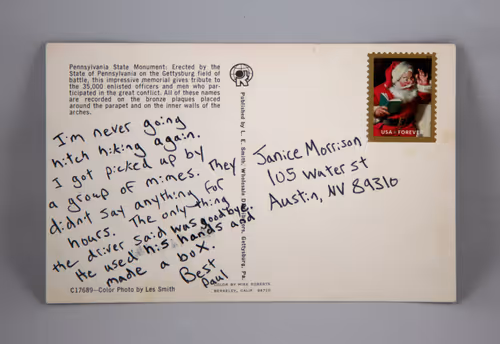 Pennsylvania State Monument: Erected by the
State of Pennsylvania on the Gettysburg field of
battle, this impressive memorial gives tribute to
the 35,000 enlisted officers and men who par-
ticipated in the great conflict. All of these names
are recorded on the bronze plaques placed
around the parapet and on the inner walls of the
arches.
I'm never going
hitch hiking again.
I got picked up by
a group of mimes. They
didn't say anything for
hours. The only thing
the driver said was goodbye.
He used his hands and
made a box.
Best
Paul
C17689—Color Photo by Les Smith
Published by L. E. Smith, Wholesale Distributors, Gettysburg, Pa.
COLOR BY MIKE ROBERTS
BERKELEY, CALIF. 94710
USA · FOREVER
Janice Morrison
105 Water St
Austin, NV 89310